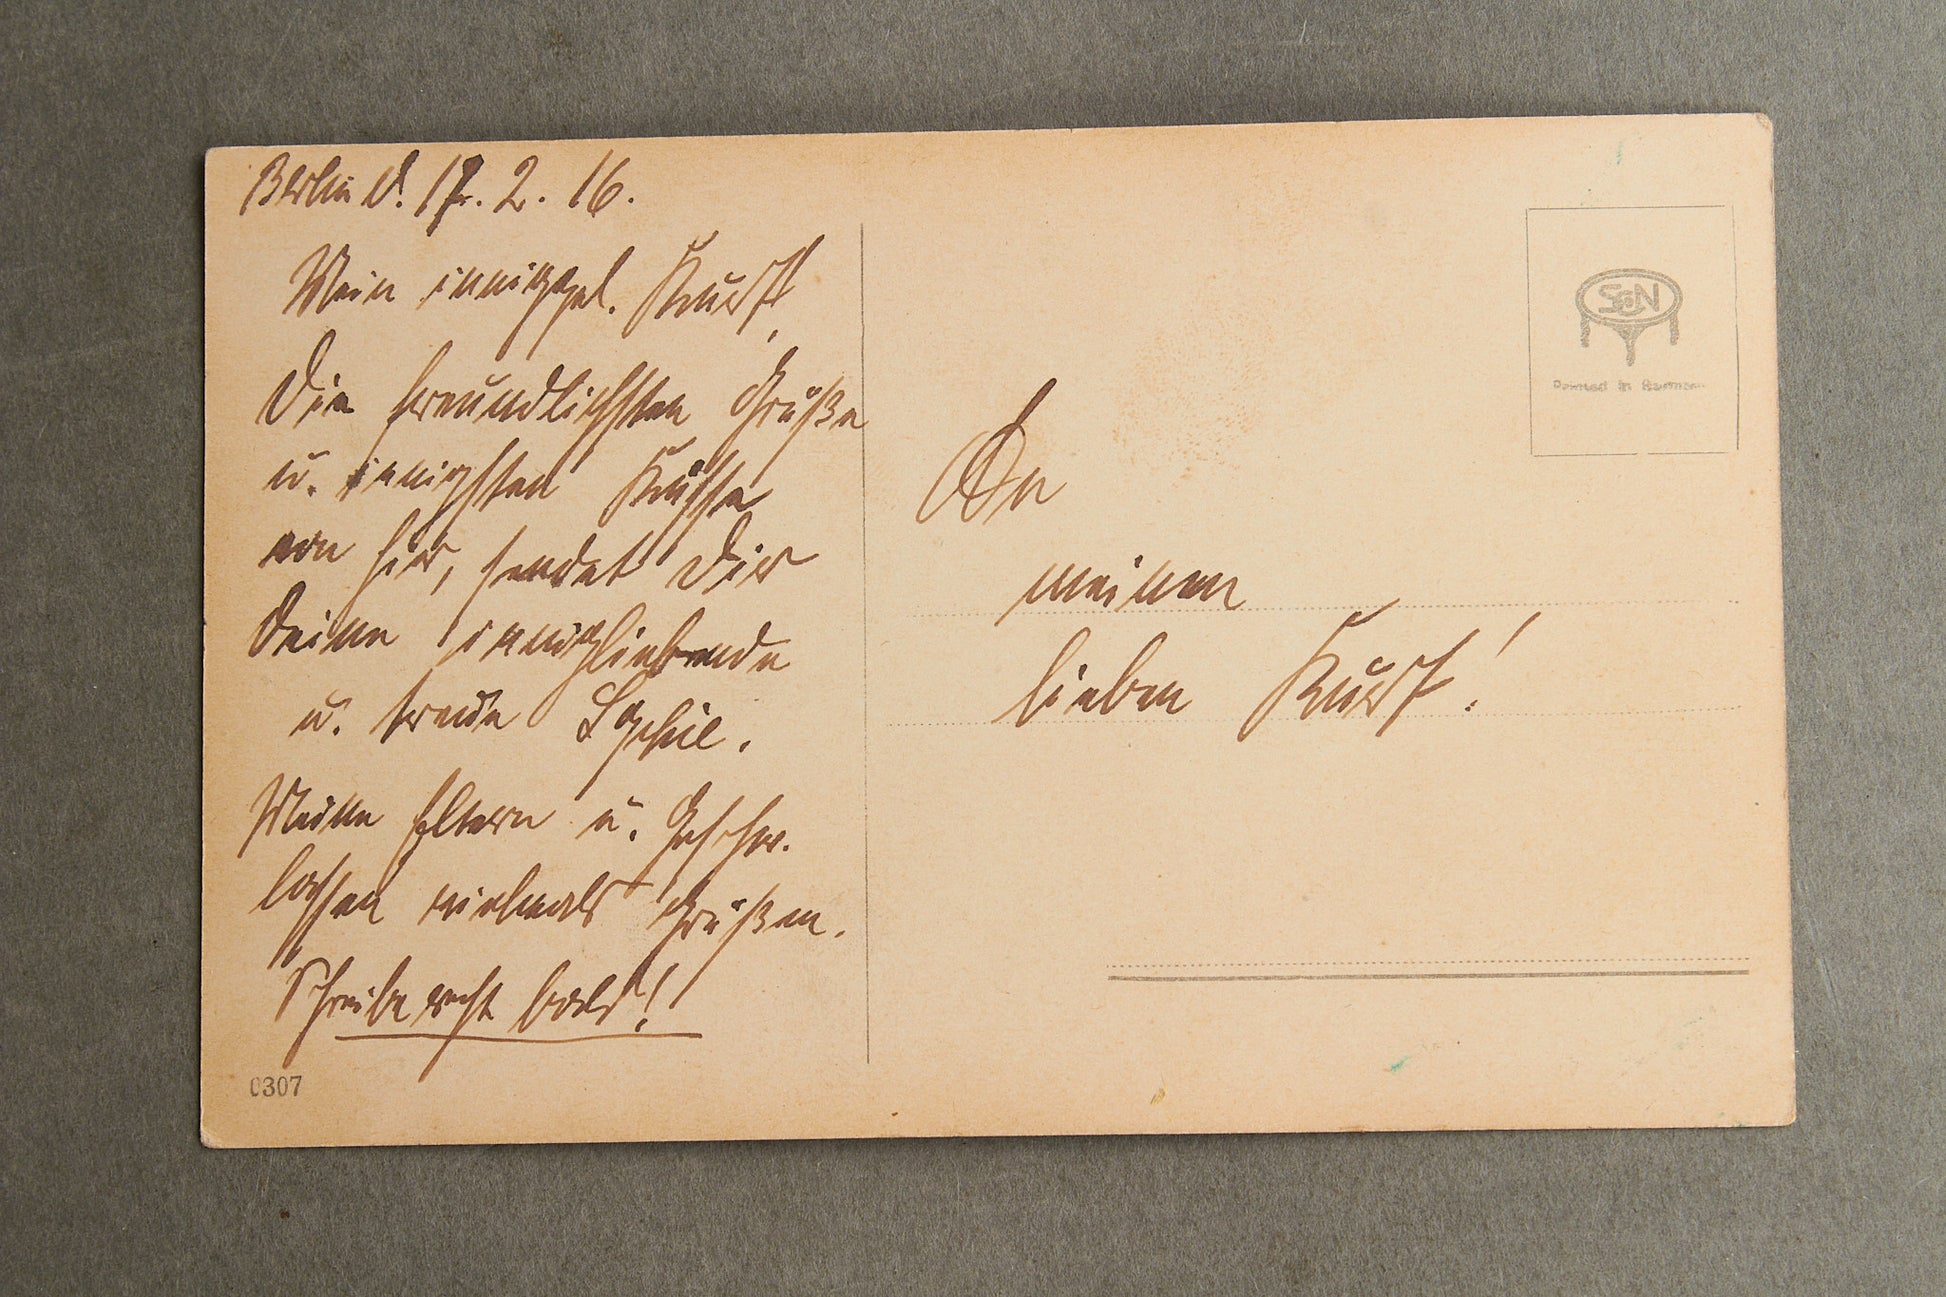 Berlin d. 17. 2. 16.
Mein inniggel. Kurt,
Die freundlichsten Grüße
u. innigsten Küsse
von hier, sendet Dir
Deine innigliebende
u. treue Sophie.
Meine Eltern u. Geschw.
lassen vielmals Grüßen.
Schreibe recht bald!
0307
SGN
Printed in Germany
An
meinen
lieben Kurt!